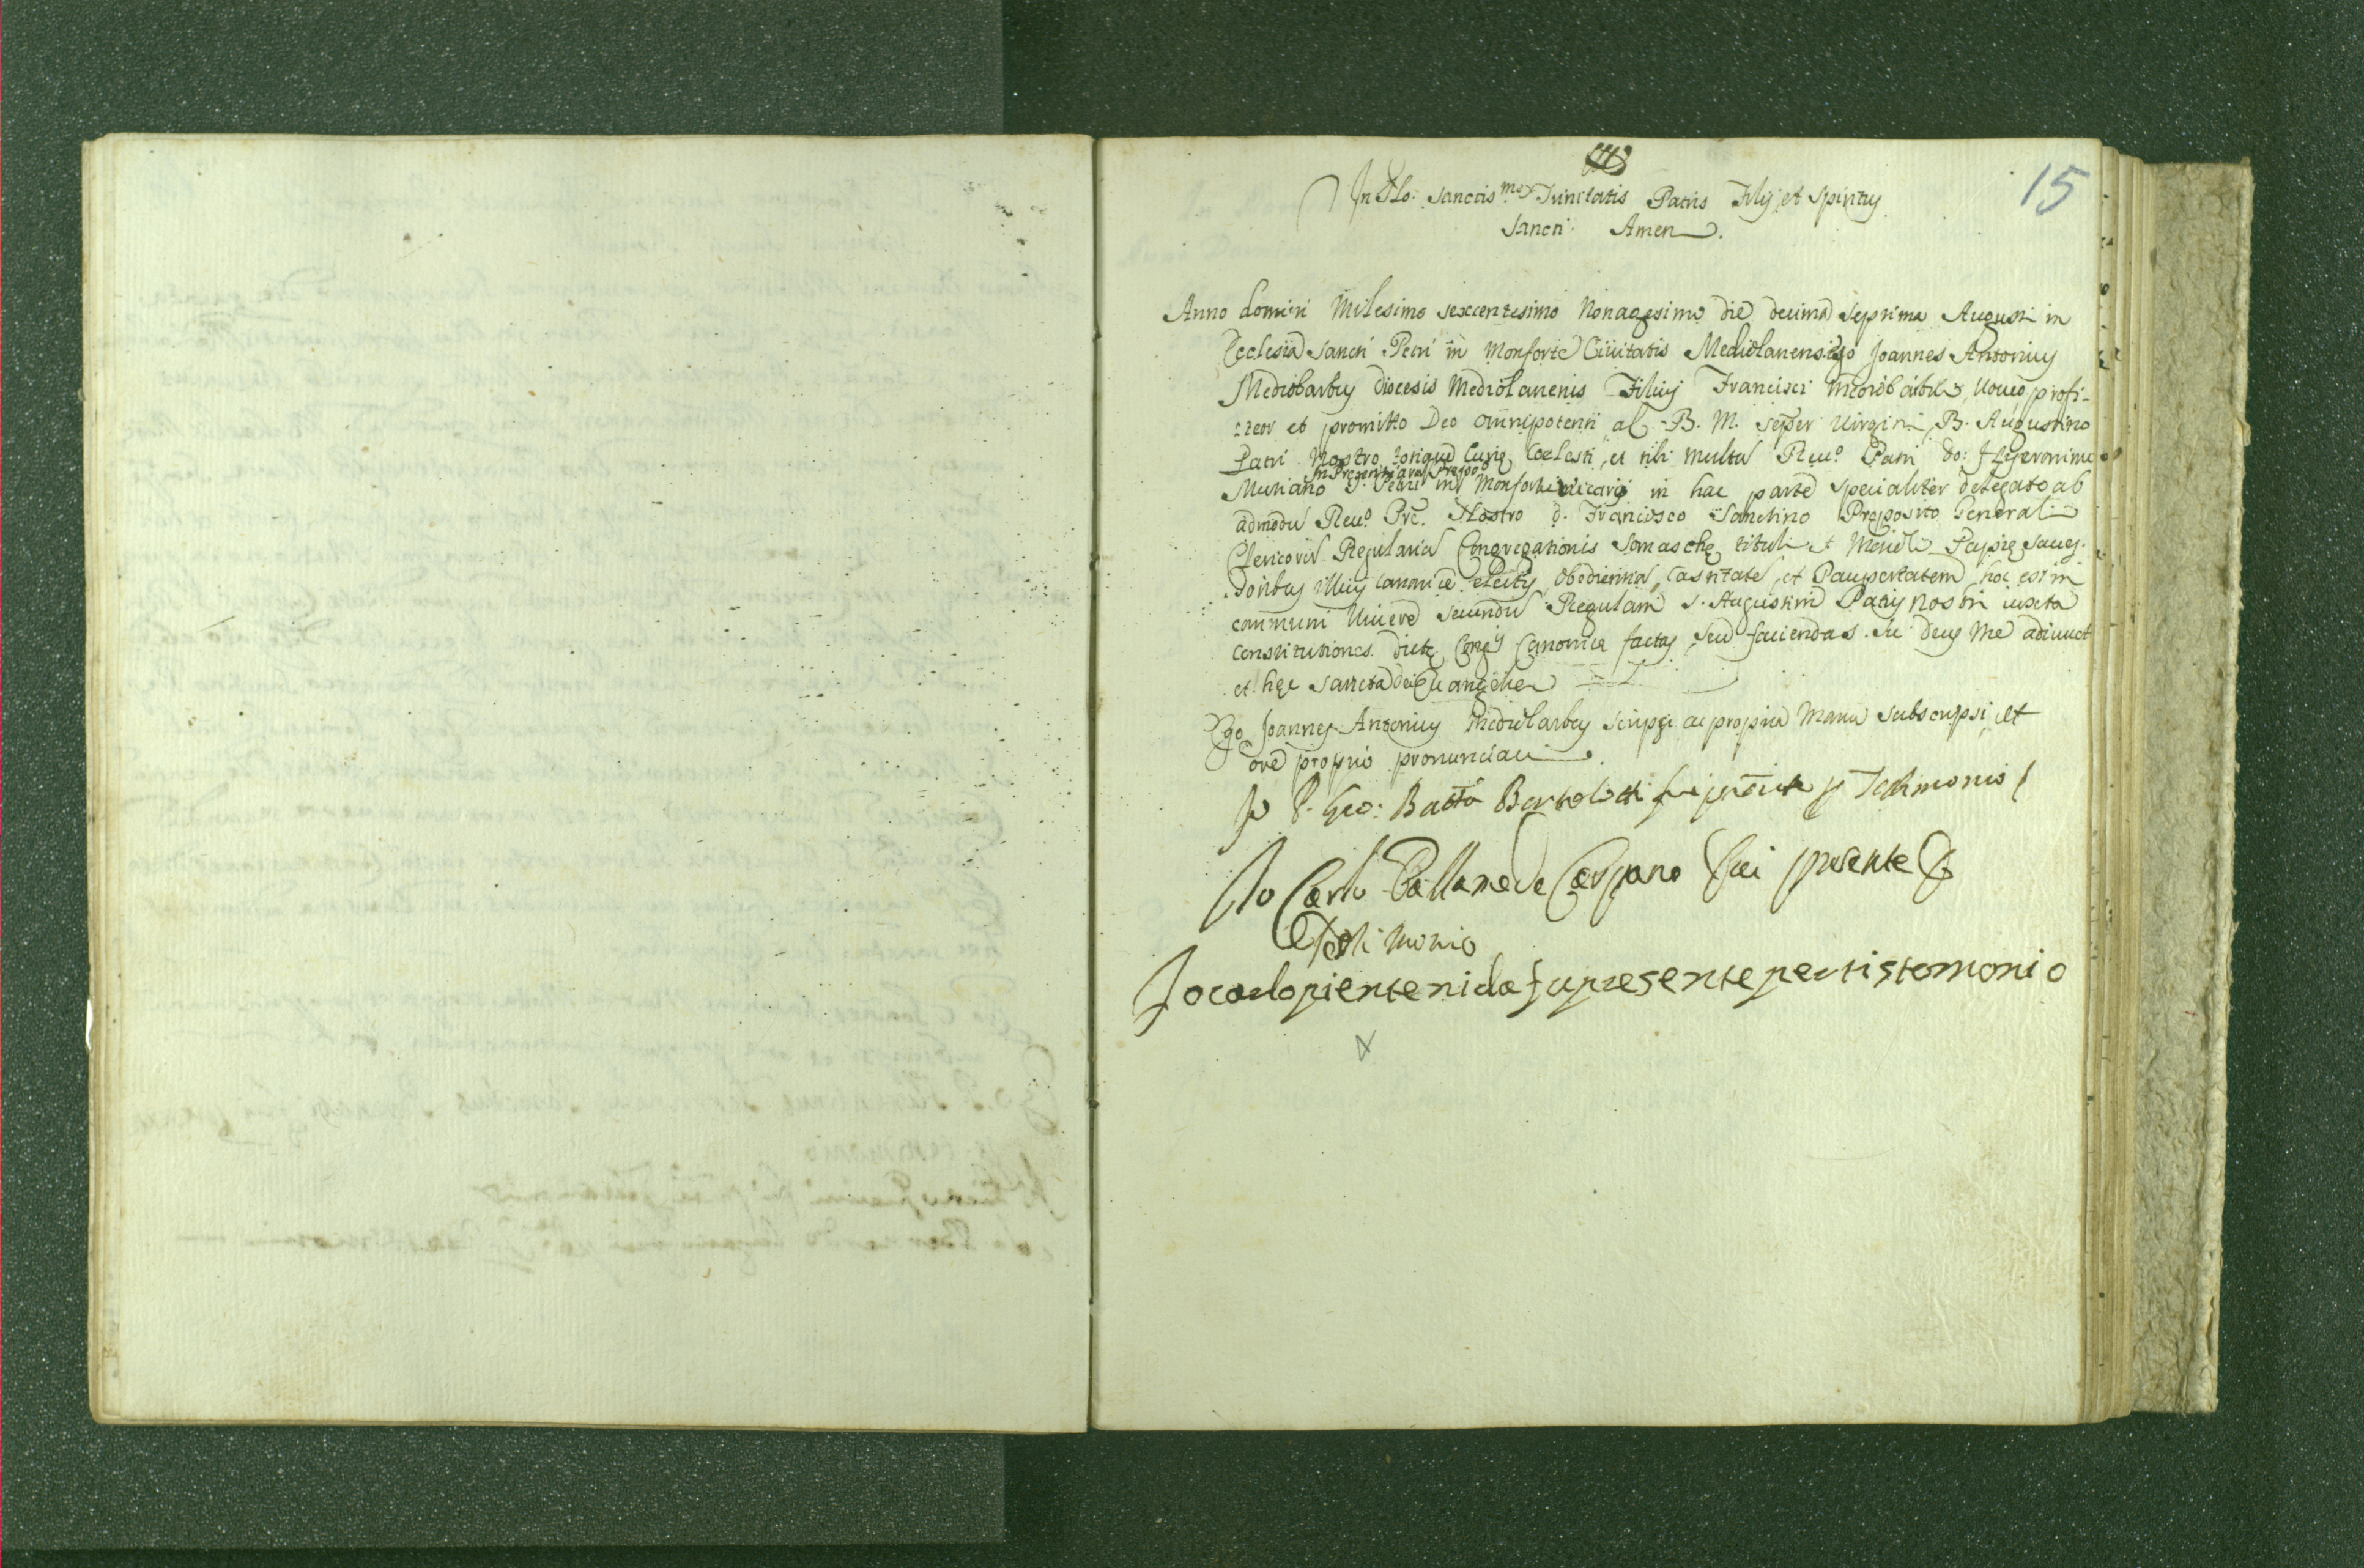 15
In Nõ: sanctis.me Trinitatis Patris Filij et Spiritus
Sancti. Amen.
Anno domini Milesimo sexcentesimo Nonagesimo die decima septima Augusti in
Ecclesia Sancti Petri in Monforte Ciuitatis Mediolanensis ego Joannes Antonius
Mediobarbus diocesis Mediolanenis Filius Francisci Mediobarbi, Voueo, profi-
teor et promitto Deo omnipotenti ac B. M. seper uirgini, B. Augustino
Patri Nostro totiqué Curię Coelesti, et tibi multu Reu.o Patri Do: Hyeronimo
In Presentiarum Preposo
Mutiano S. Petri in Monforte uicario in hac parte specialiter delegato ab
admodu Reu.o Pre. Nostro d. Francisco Santino Pręposito Generali
Clericoru Regulariu Congregationis Somaschę tituli et Meiuli Papię sauç.
soribus illius canonice electis, obedientia, Castitate, et Paupertatem, hoc est in
communi Uiuere secundu Regulam S. Augustini Patris Nostri iuxta
Constitutiones dictę Congis Canonice factas, seu faciendas. Sic Deus Me adiuuet
et hęc sancta dei Euangelia
Ego Joannes Antonius Mediobarbus scripsi ac propria Manu subscripsi, et
ore proprio pronunciaui.
Io P. Gio: Batta Bertolotti fui pñte p Testimonio
Io Carlo Pallauede Carpano fui presente p
Testimonio
Io carlo pientenida fu presente per tistomonio